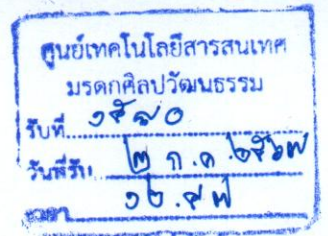 ศูนย์เทคโนโลยีสารสนเทศ
มรดกศิลปวัฒนธรรม
รับที่
วันที่รับ ๒ ก.ค. ๒๕๖๗
เวลา